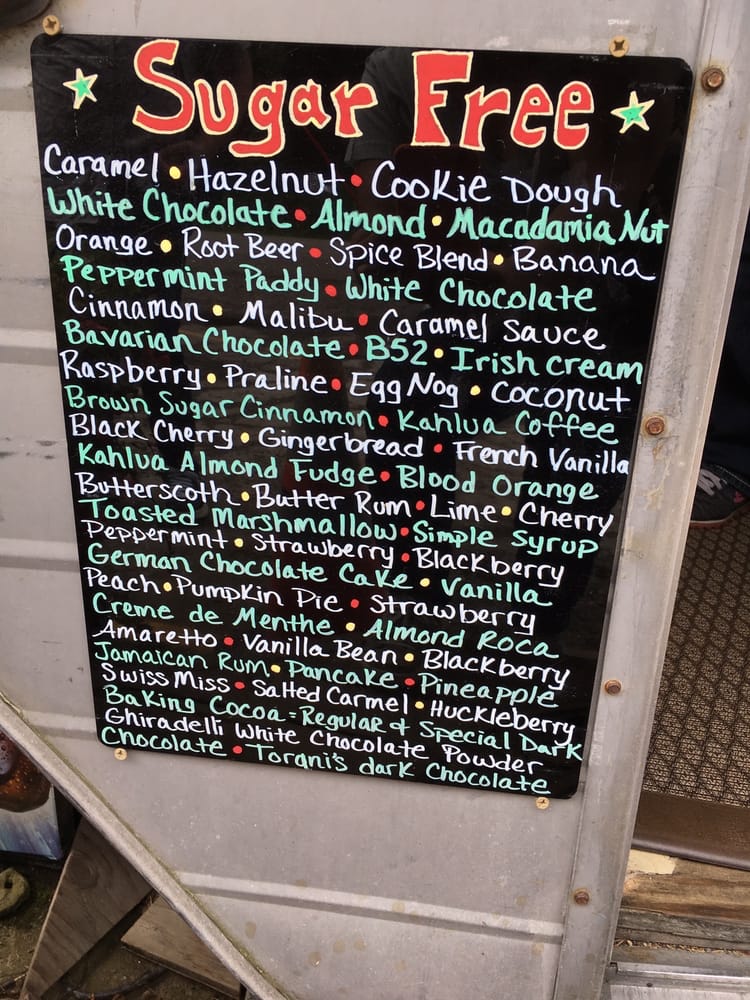 Sugar Free
Caramel • Hazelnut • Cookie Dough
White Chocolate • Almond • Macadamia Nut
Orange • Root Beer • Spice Blend • Banana
Peppermint Paddy • White Chocolate
Cinnamon • Malibu • Caramel Sauce
Bavarian Chocolate • B52 • Irish Cream
Raspberry • Praline • Egg Nog • Coconut
Brown Sugar Cinnamon • Kahlua Coffee
Black Cherry • Gingerbread • French Vanilla
Kahlua Almond Fudge • Blood Orange
Butterscoth • Butter Rum • Lime • Cherry
Toasted Marshmallow • Simple Syrup
Peppermint • Strawberry • Blackberry
German Chocolate Cake • Vanilla
Peach • Pumpkin Pie • Strawberry
Creme de Menthe • Almond Roca
Amaretto • Vanilla Bean • Blackberry
Jamaican Rum • Pancake • Pineapple
Swiss Miss • Salted Carmel • Huckleberry
Baking Cocoa = Regular & Special Dark
Ghiradelli White Chocolate Powder
Chocolate • Torani's dark Chocolate